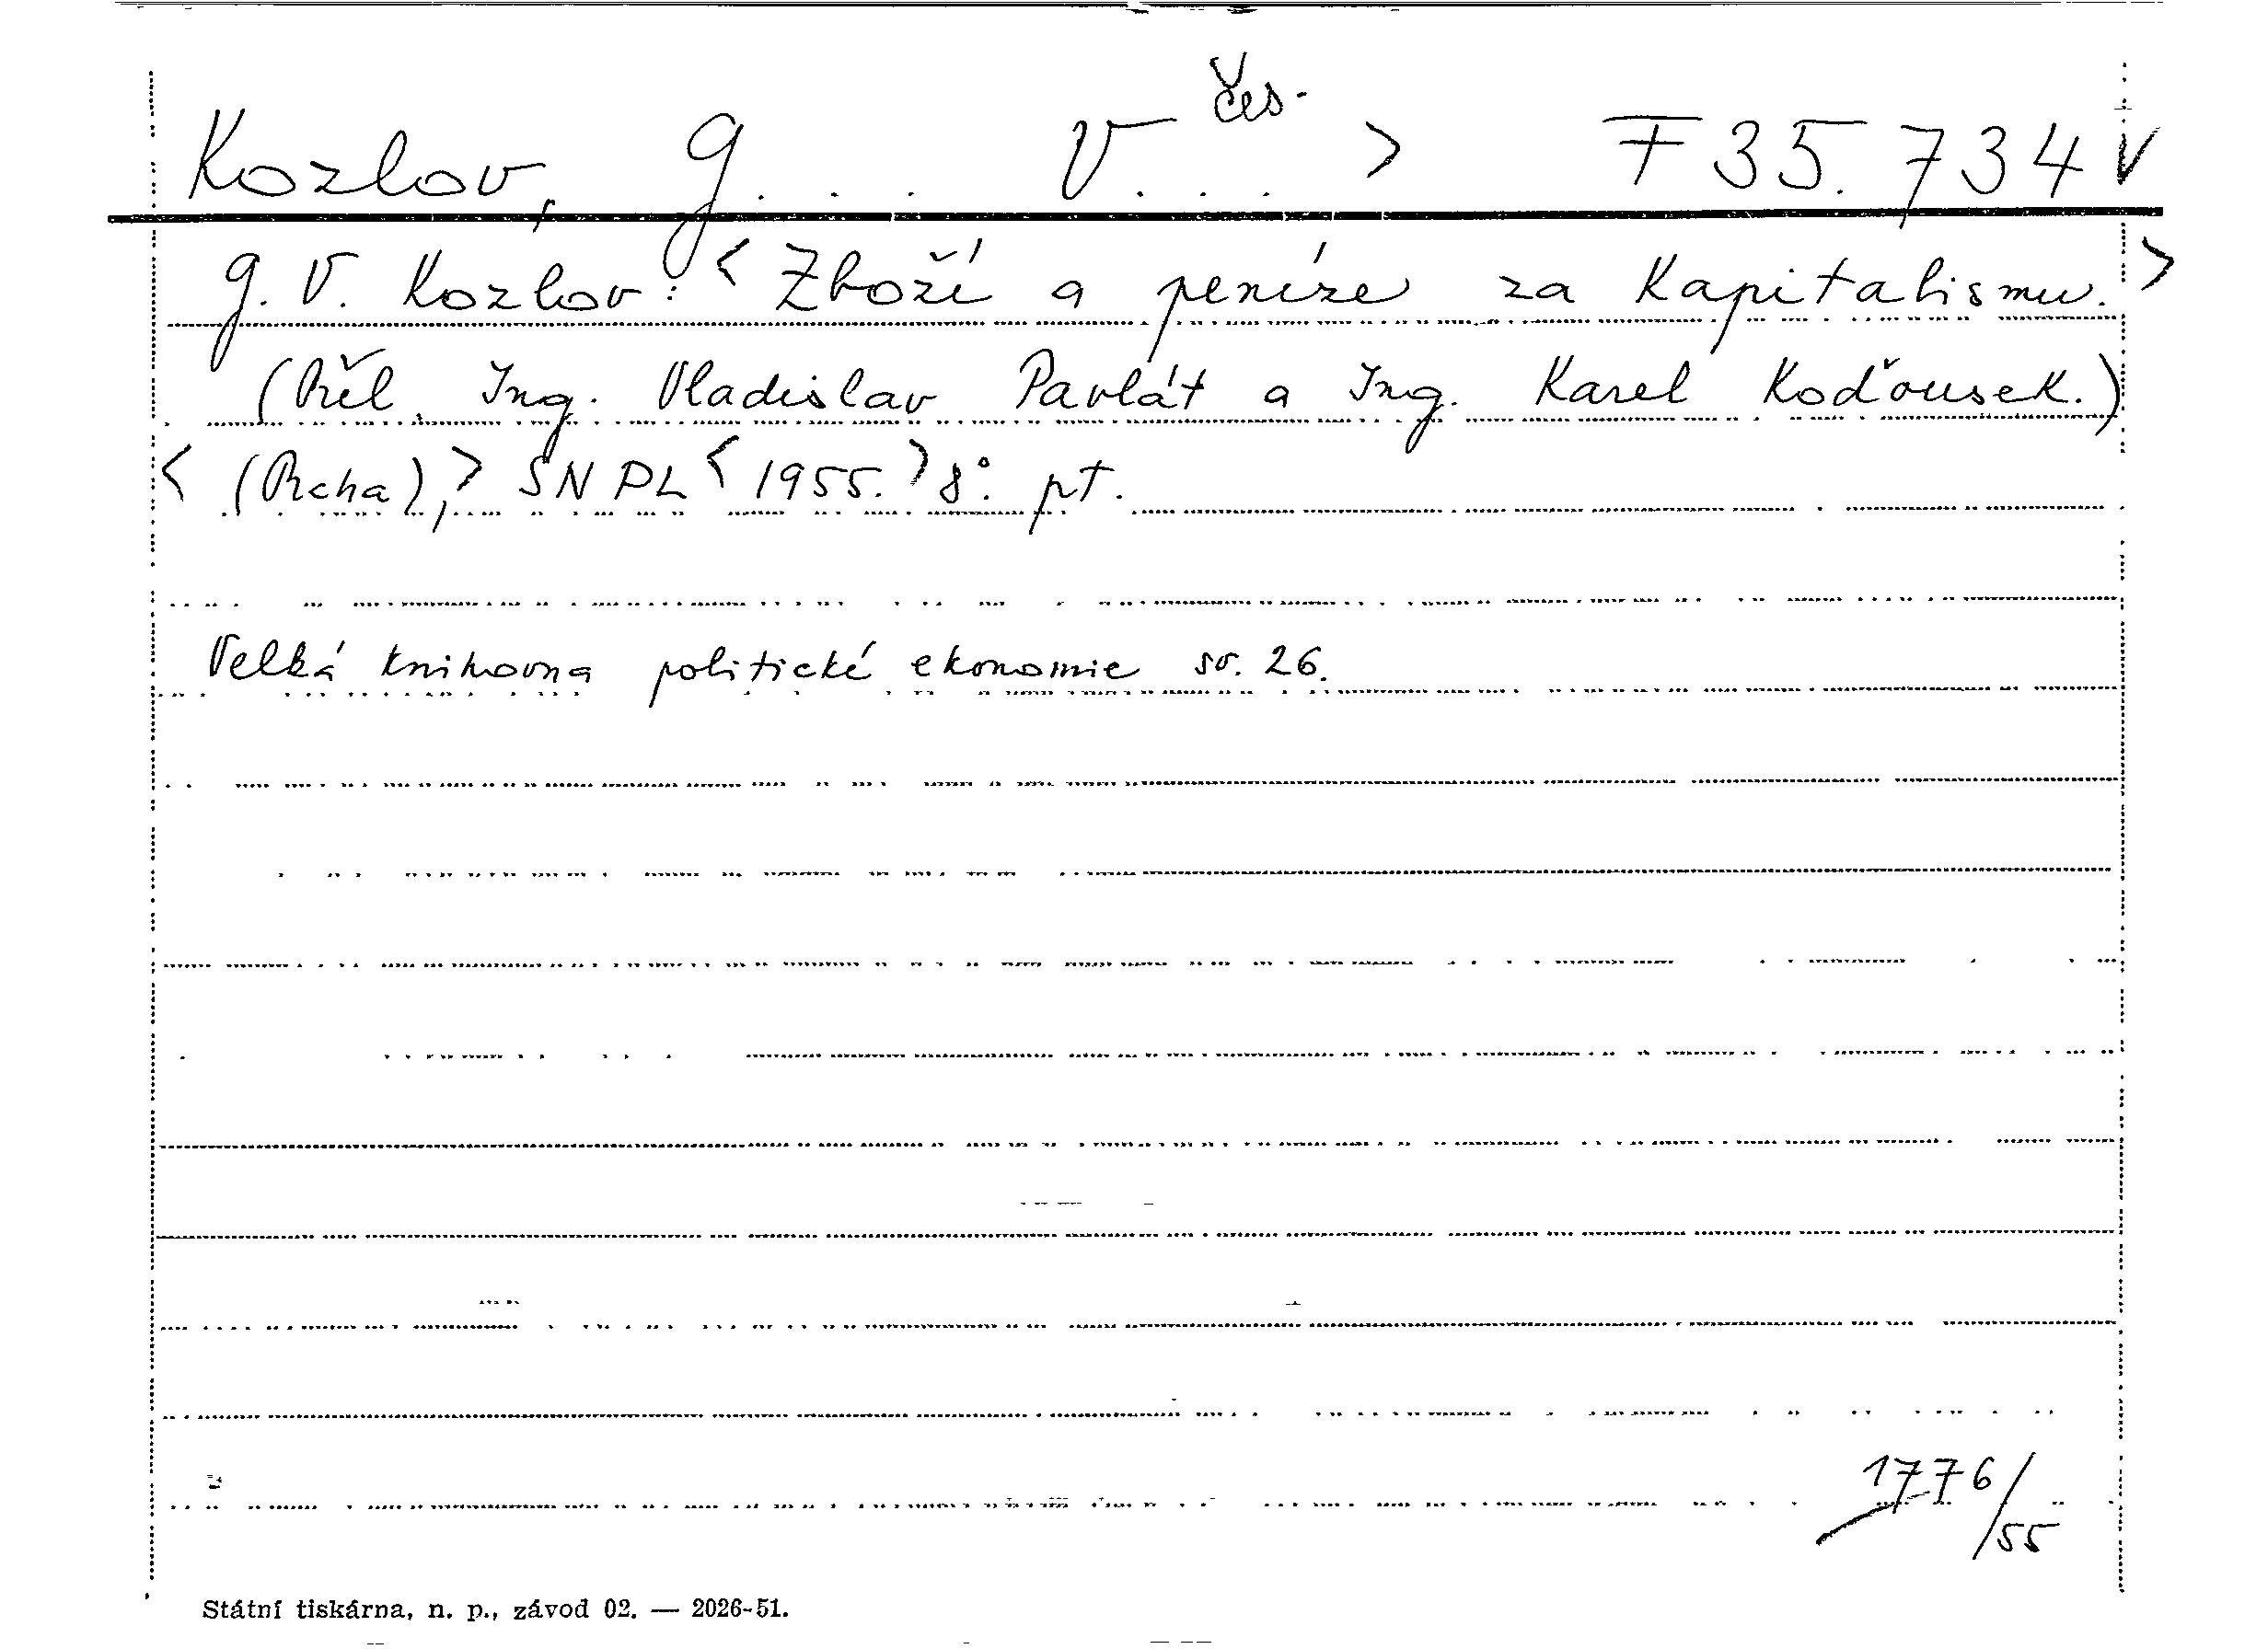 čes.
Kozlov, G... V...> F 35.734 V
G. V. Kozlov: <Zboží a peníze za kapitalismu.>
(Přel. Ing. Vladislav Pavlát a Ing. Karel Koďousek.)
<(Praha),> SNPL <1955.> 8°. pt.
Velká knihovna politické ekonomie sv. 26.
1776/55
Státní tiskárna, n. p., závod 02. — 2026-51.